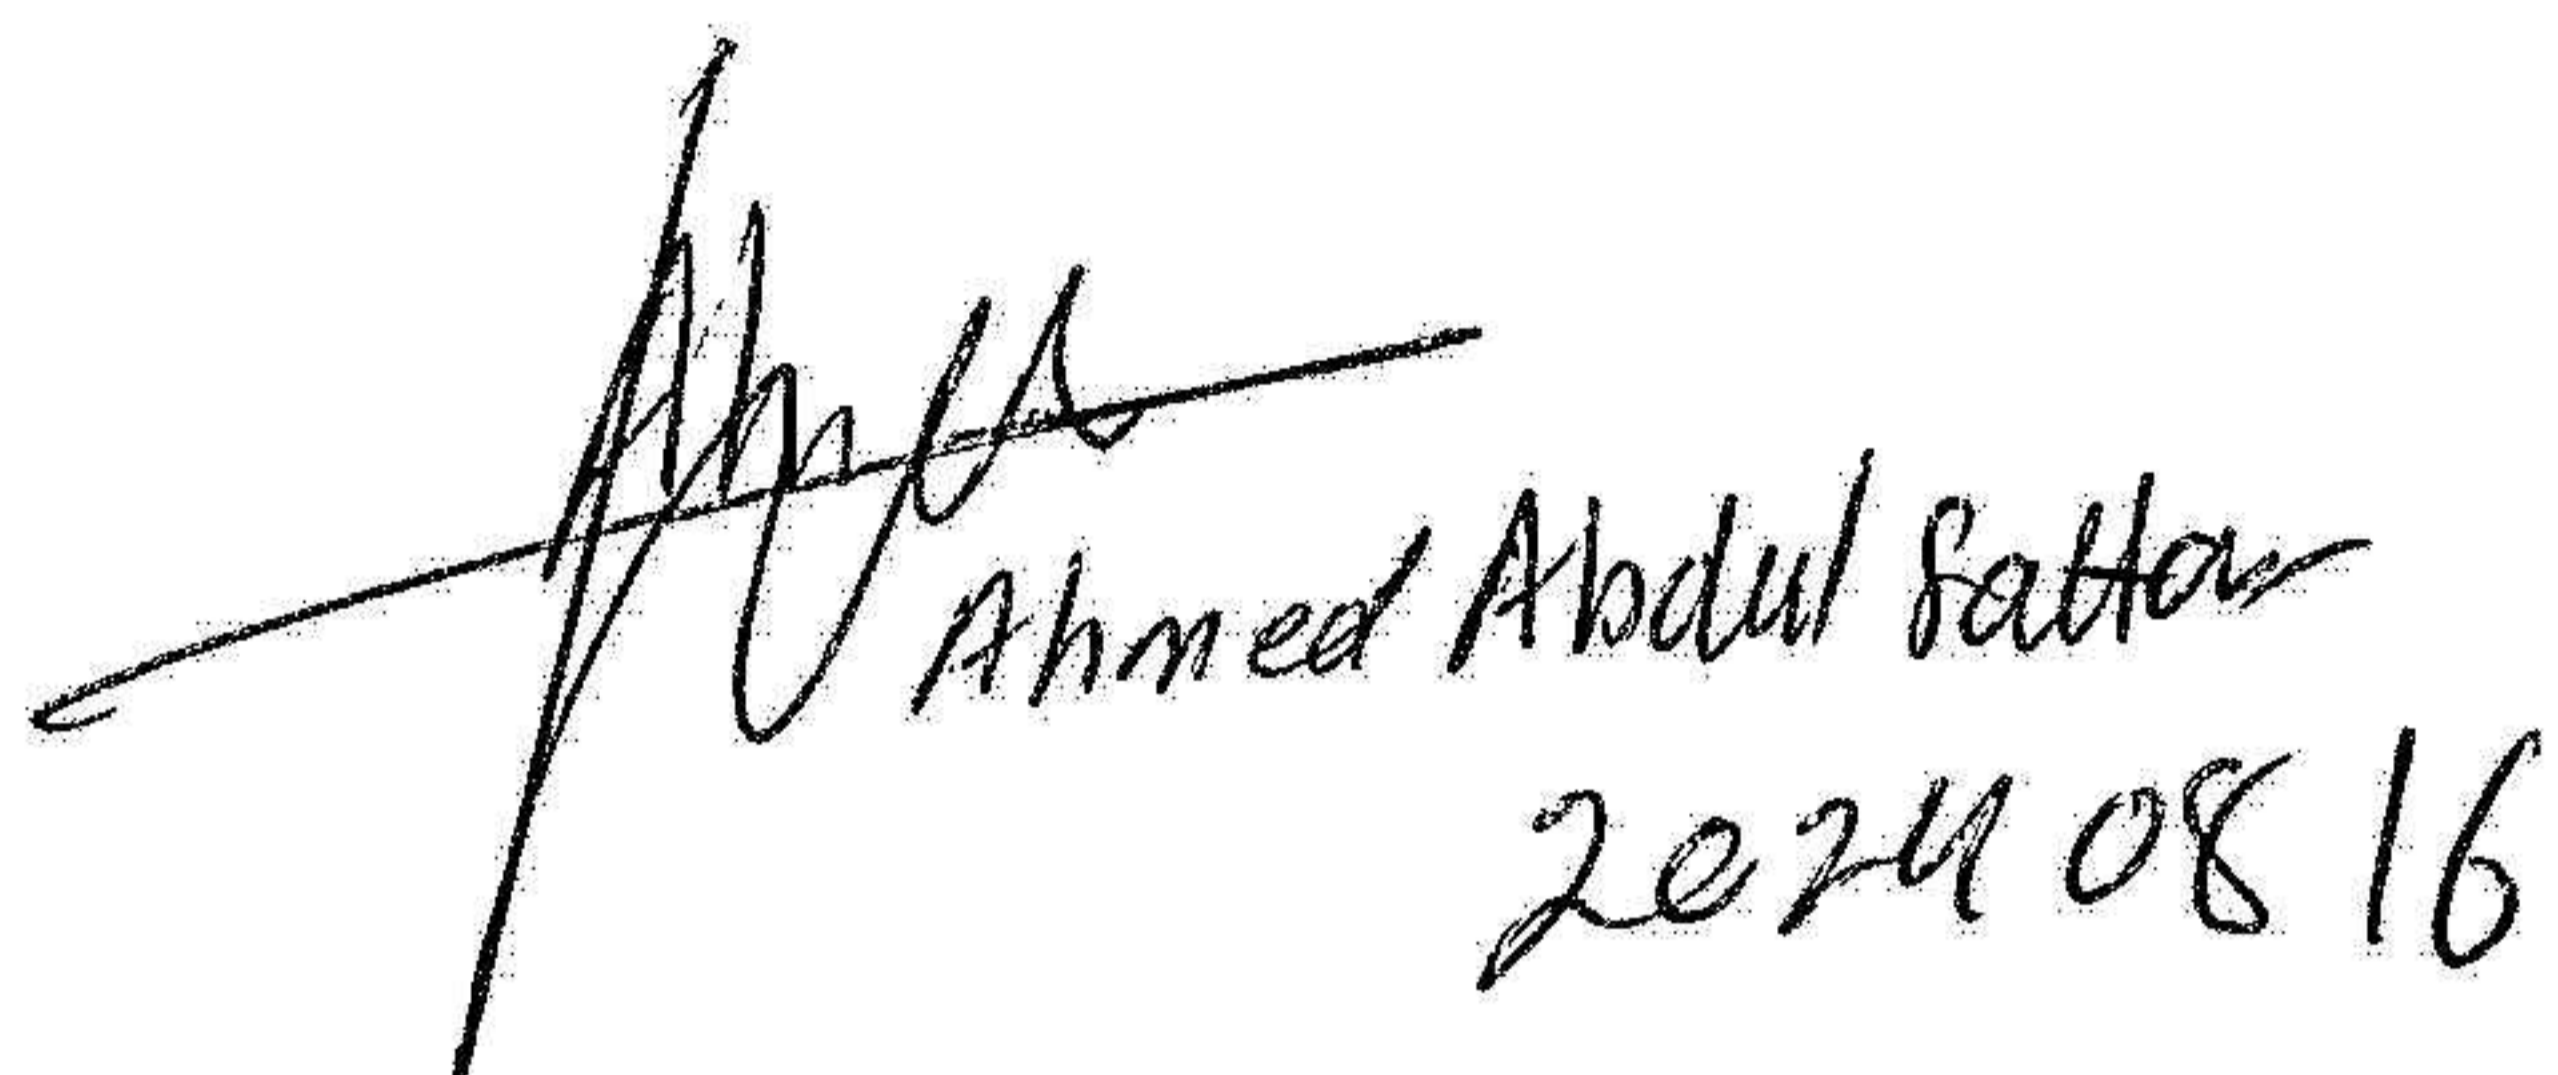 Ahmed Abdul Sattar
2024 08 16